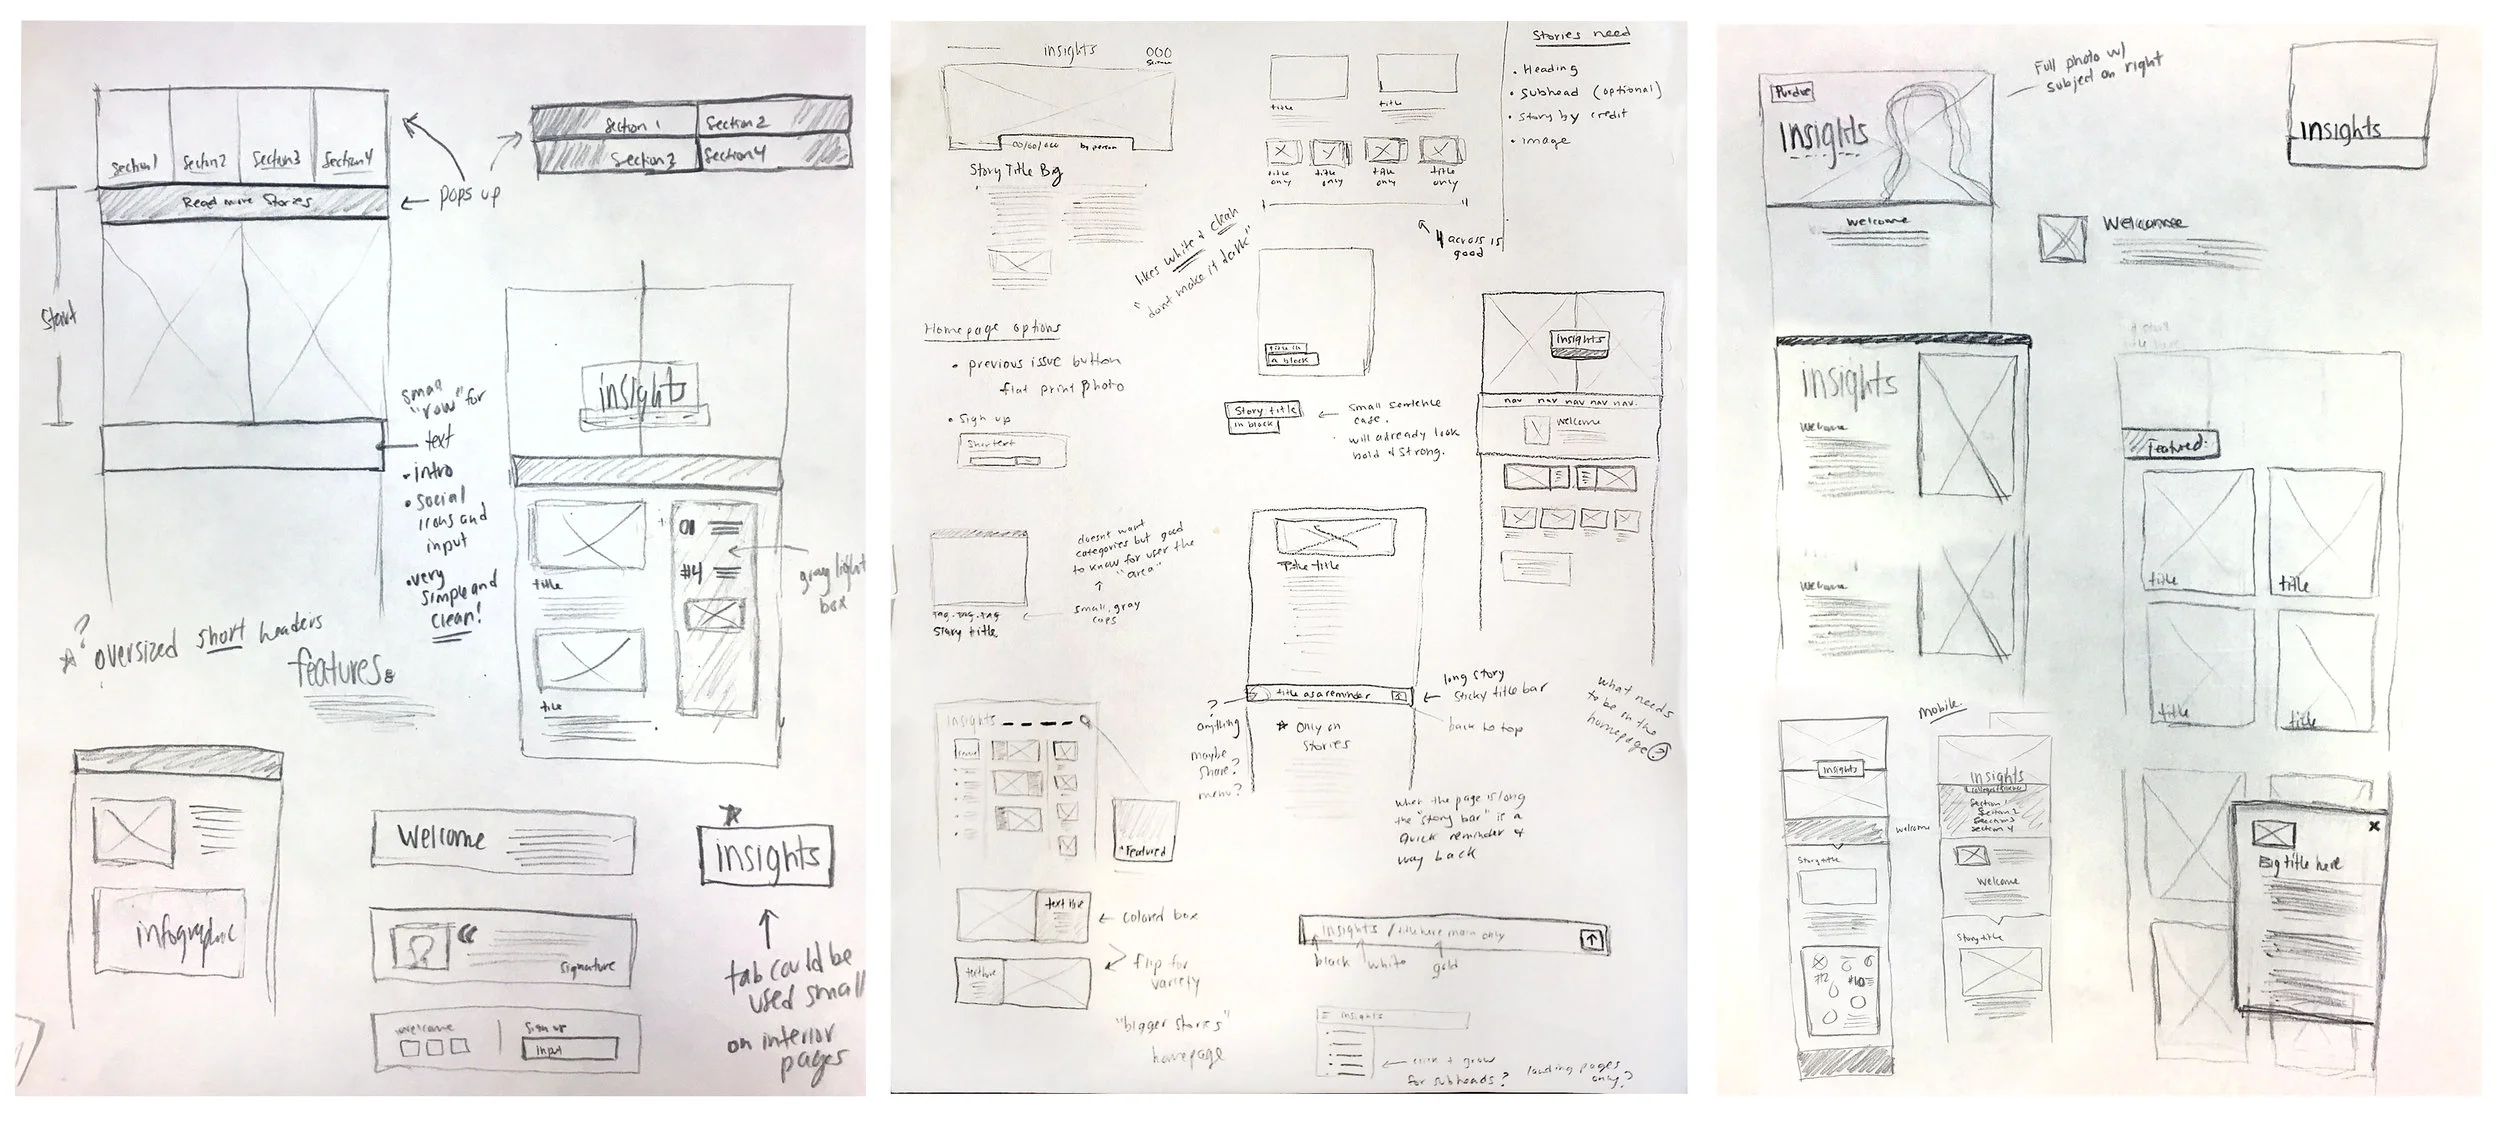 Section 1
Section 2
Section 3
Section 4
Read more Stories
pops up
Section 1
Section 2
Section 3
Section 4
Start
small
"row" for
text
• intro
• social
icons and
input
• very
simple and
clean!
insights
title
title
01
#4
gray light
box
? oversized short headers
features.
infographic
Welcome
"
signature
welcome
Sign up
input
insights
tab could be
used small
on interior
pages
insights
000
00/00/000
by person
Story Title Big
title
title
title
only
title
only
title
only
title
only
4 across is
good
Stories need
• Heading
• subhead (optional)
• story by credit
• image
likes white & clean
"dont make it dark"
Homepage options
• previous issue button
flat print photo
• Sign up
Short text
title in
a block
Story title
in block
small sentence
case.
will already look
bold & strong.
insights
nav nav nav nav nav
welcome
doesnt want
categories but good
to know for user the
"area"
small, gray
caps
TAG. TAG. TAG
Story title
title
title as a reminder
long story
sticky title bar
back to top
? anything
maybe
share?
menu?
Only on
Stories
what needs
to be in the
homepage
insights
Featured
when the page is long
the "story bar" is a
quick reminder &
way back
text here
colored box
text here
flip for
variety
"bigger stories"
homepage
insights / title here main only
black
white
gold
insights
click + grow
for subheads?
landing pages
only?
Purdue
insights
welcome
Full photo w/
subject on right
insights
Welcome
insights
Welcome
Welcome
Featured
title
title
title
title
mobile
insights
welcome
Story title
#2
#10
insights
Section 1
Section 2
Section 3
Section 4
Welcome
Story title
x
Big title here